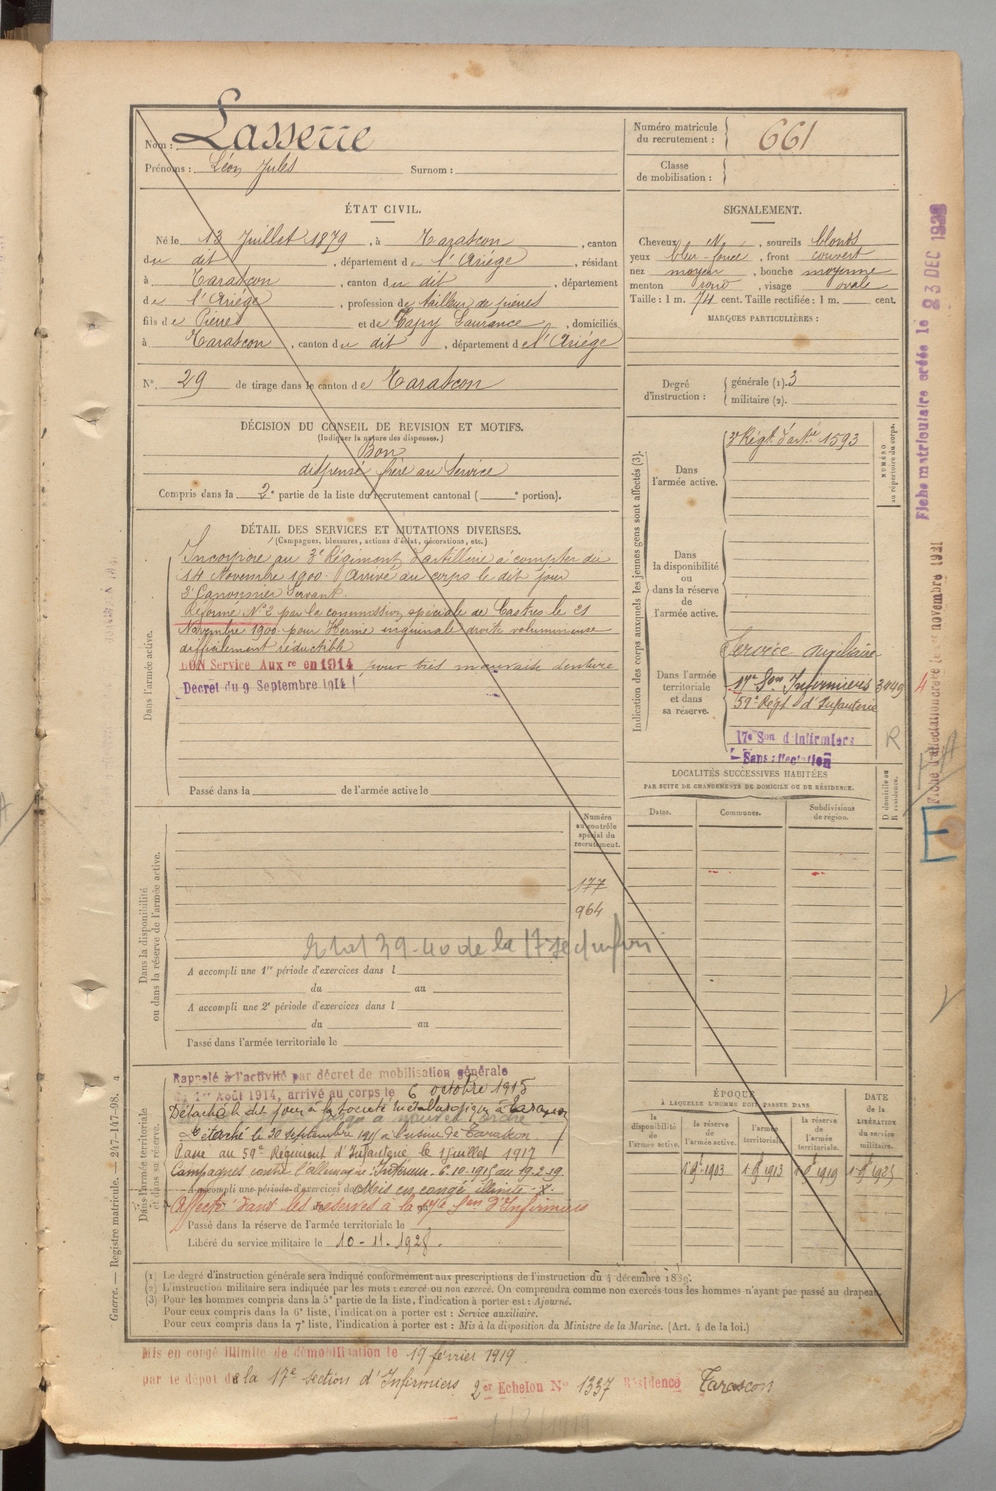 Nom : Lasserre
Prénoms : Léon Jules Surnom :
Numéro matricule du recrutement : 661
Classe de mobilisation :
ÉTAT CIVIL.
Né le 13 Juillet 1879, à Tarascon, canton
du dit, département de l'Ariège, résidant
à Tarascon, canton du dit, département
de l'Ariège, profession de tailleur de pierres
fils de Pierre et de Laurance, domiciliés
à Tarascon, canton du dit, département de l'Ariège
N° 29 de tirage dans le canton de Tarascon
SIGNALEMENT.
Cheveux N, sourcils blonds
yeux bleu-foncé, front couvert
nez moyen, bouche moyenne
menton rond, visage ovale
Taille : 1 m. 74 cent. Taille rectifiée : 1 m. cent.
MARQUES PARTICULIÈRES :
Degré d'instruction : générale (1). 3
militaire (2).
DÉCISION DU CONSEIL DE REVISION ET MOTIFS.
(Indiquer la nature des dispenses.)
Bon
dispensé frère au service
Compris dans la 2e partie de la liste du recrutement cantonal ( e portion).
DÉTAIL DES SERVICES ET MUTATIONS DIVERSES.
(Campagnes, blessures, actions d'éclat, décorations, etc.)
Dans l'armée active.
Incorporé au 3e Régiment d'artillerie à compter du
14 Novembre 1900. Arrivé au corps le dit jour
2e Canonnier Servant.
Réformé N° 2 par la commission spéciale de Castres le 21
Novembre 1900 pour Hernie inguinale droite volumineuse
difficilement réductible
BON Service Auxre en 1914 pour très mauvaise denture
Décret du 9 Septembre 1914
Passé dans la de l'armée active le
Indication des corps auxquels les jeunes gens sont affectés (3).
NUMÉRO au répertoire du corps.
Dans l'armée active.
3e Régt d'artie 1593
Dans la disponibilité ou dans la réserve de l'armée active.
Dans l'armée territoriale et dans sa réserve.
Service auxiliaire
17e Son Infirmiers 3049
59e Régt d'Infanterie
17e Son d'Infirmiers
Sans affectation
R
LOCALITÉS SUCCESSIVES HABITÉES
PAR SUITE DE CHANGEMENTS DE DOMICILE OU DE RÉSIDENCE.
Dates.
Communes.
Subdivisions de région.
D domicile ou R résidence.
Dans la disponibilité ou dans la réserve de l'armée active.
Numéro au contrôle spécial du recrutement.
177
964
A accompli une 1re période d'exercices dans l
du au
A accompli une 2e période d'exercices dans l
du au
Passé dans l'armée territoriale le
Dans l'armée territoriale et dans sa réserve.
Rappelé à l'activité par décret de mobilisation générale
du 1er Août 1914, arrivé au corps le 6 octobre 1915
Détaché le dit jour à la Société métallurgique à Tarascon
Détaché le 30 septembre 1915 à l'usine de Tarascon.
Passé au 59e Régiment d'Infanterie, le 1 juillet 1917
Campagnes contre l'Allemagne : Intérieur - 6.10.1915 au 19.2.19.
A accompli une période d'exercices dans Mis en congé illimité
Affecté dans les réserves à la 17e Son d'Infirmiers
Passé dans la réserve de l'armée territoriale le
Libéré du service militaire le 10-11-1928.
ÉPOQUE
À LAQUELLE L'HOMME DOIT PASSER DANS
la disponibilité de l'armée active.
la réserve de l'armée active.
l'armée territoriale.
la réserve de l'armée territoriale.
DATE de la LIBÉRATION du service militaire.
(1) Le degré d'instruction générale sera indiqué conformément aux prescriptions de l'instruction du 4 décembre 1889.
(2) L'instruction militaire sera indiquée par les mots : exercé ou non exercé. On comprendra comme non exercés tous les hommes n'ayant pas passé au drapeau.
(3) Pour les hommes compris dans la 5e partie de la liste, l'indication à porter est : Ajourné.
Pour ceux compris dans la 6e liste, l'indication à porter est : Service auxiliaire.
Pour ceux compris dans la 7e liste, l'indication à porter est : Mis à la disposition du Ministre de la Marine. (Art. 4 de la loi.)
Mis en congé illimité de démobilisation le 19 février 1919.
par le dépôt de la 17e section d'Infirmiers 2er Echelon N° 1337 Résidence Tarascon
Guerre. — Registre matricule. — 247-147-98.
Fiche matriculaire créée le 23 DEC
novembre 1931